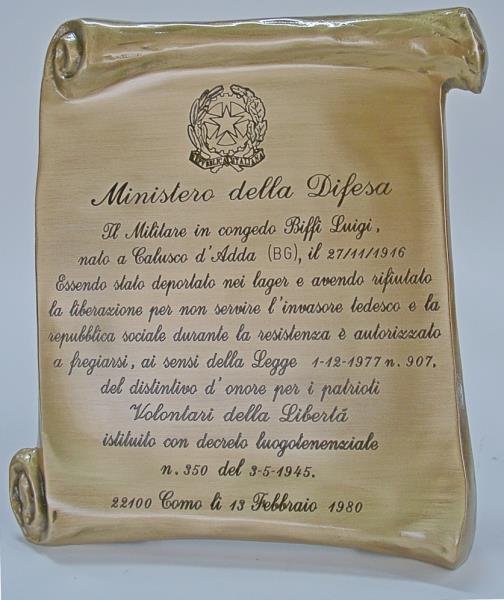 REPVBBLICA ITALIANA
Ministero della Difesa
Il Militare in congedo Biffi Luigi,
nato a Calusco d'Adda (BG), il 27/11/1916
Essendo stato deportato nei lager e avendo rifiutato
la liberazione per non servire l'invasore tedesco e la
repubblica sociale durante la resistenza è autorizzato
a fregiarsi, ai sensi della Legge 1-12-1977 n. 907,
del distintivo d'onore per i patrioti
Volontari della Libertá
istituito con decreto luogotenenziale
n. 350 del 3-5-1945.
22100 Como li 13 Febbraio 1980